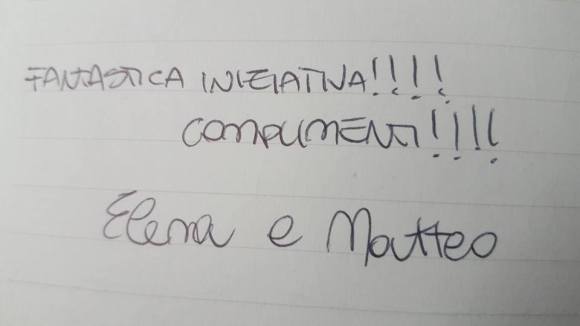 FANTASTICA INIZIATIVA!!!!
COMPLIMENTI!!!!
Elena e Matteo